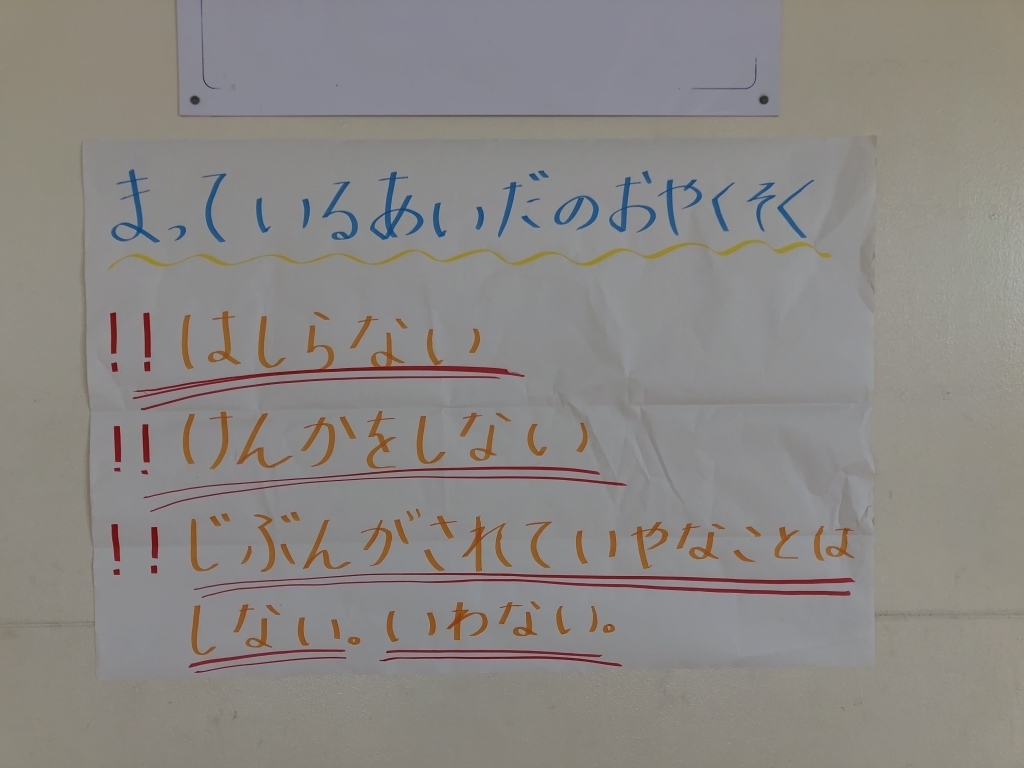 まっているあいだのおやくそく
!! はしらない
!! けんかをしない
!! じぶんがされていやなことは
しない。いわない。